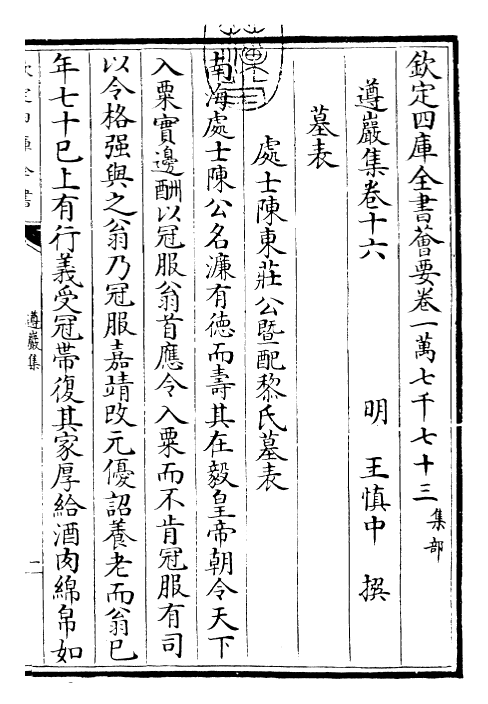 欽定四庫全書薈要卷一萬七千七十三集部
遵巖集卷十六
明 王慎中 撰
墓表
處士陳東莊公暨配黎氏墓表
南海處士陳公名濂有德而壽其在毅皇帝朝令天下
入粟實邊酬以冠服翁首應令入粟而不肯冠服有司
以令格强與之翁乃冠服嘉靖改元優詔養老而翁已
年七十已上有行義受冠帶復其家厚給酒肉綿帛如
遵巖集